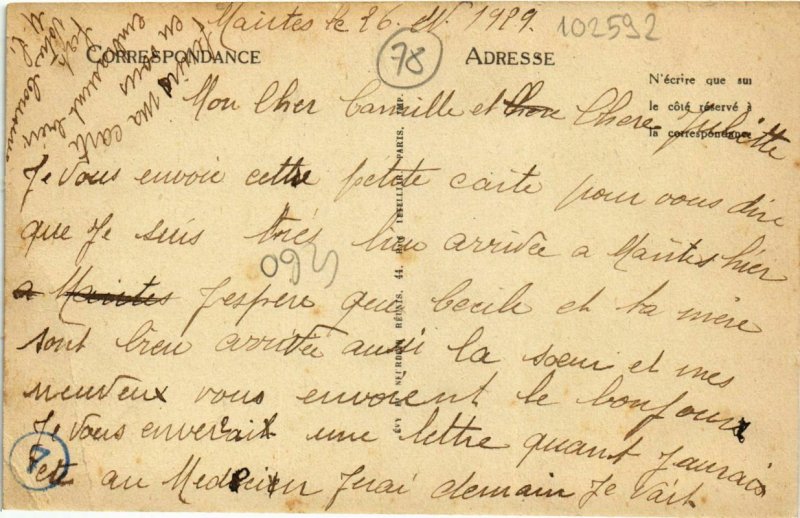 Mantes le 26. 1929.
102592
78
CORRESPONDANCE
ADRESSE
N'écrire que sur
le côté réservé à
la correspondance
Mon Cher Camille et Chere Juliette
Je vous envoie cette petite carte pour vous dire
que Je suis très bien arrivée a Mantes hier
a Mantes J'espère que Cecile et ta mère
sont bien arrivée aussi la sœur et mes
neuveux vous envoient le bonjour
Je vous enverait une lettre quant J'aurais
été au Medecin Jirai demain Je vait
0925
7
44, RUE LETELLIER, PARIS, IMP.
RÉUNIS,
ma carte
en vous
embrassant bien
fort
votre